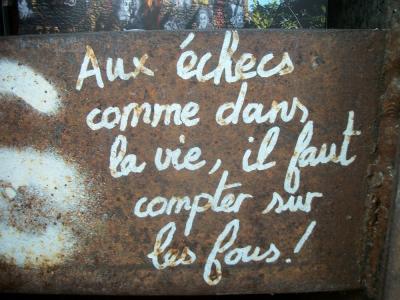 Aux échecs
comme dans
la vie, il faut
compter sur
les fous!